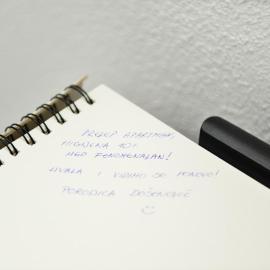 PREDEP APARTMAN,
HIGIJENA 10!
MED FENOMENALAN!
HVALA I VIDIMO SE PONOVO!
PORODICA DOŠENOVIĆ